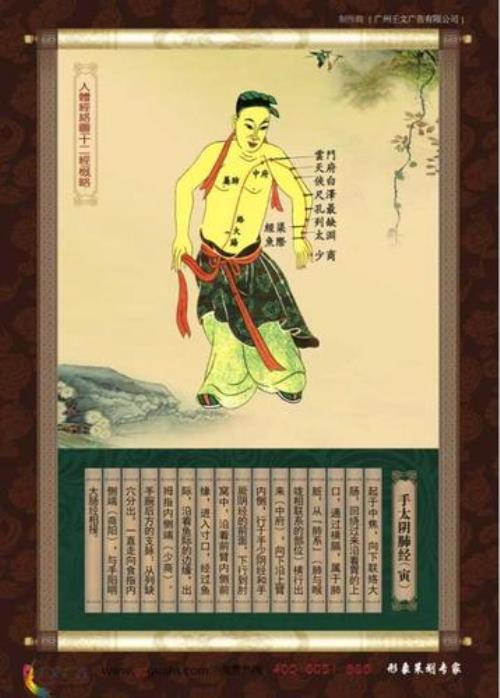 制作商（广州壬文广告有限公司）
人體經絡圖十二經概略
雲門
天府
俠白
尺澤
孔最
列缺
太淵
少商
中府
經渠
魚際
手太阴肺经（寅）
起于中焦，向下联络大
肠，回绕过来沿着胃的上
口，通过横膈，属于肺
脏，从「肺系」（肺与喉
咙相联系的部位）横行出
来（中府），向下沿上臂
内侧，行于手少阴经和手
厥阴经的前面，下行到肘
窝中，沿着前臂内侧前
缘，进入寸口，经过鱼
际，沿着鱼际的边缘，出
拇指内侧端（少商）。
手腕后方的支脉，从列缺
穴分出，一直走向食指内
侧端（商阳），与手阳明
大肠经相接。
形象策划专家